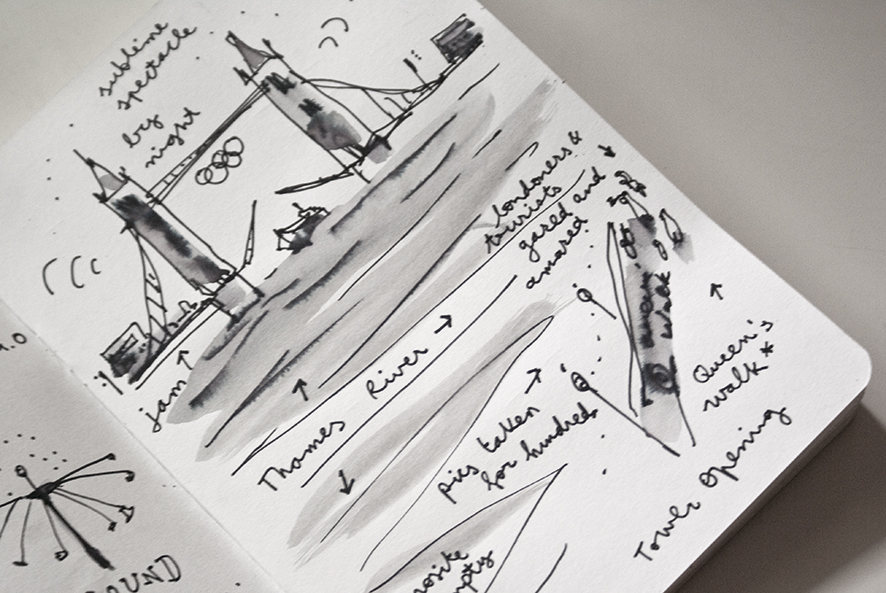 sublime
spectacle
by
night
Londoners &
tourists
gazed and
amazed
jam
Thames River
pics taken
for hundred
Queen's
walk*
Tower Opening
posite
mpty
OUND